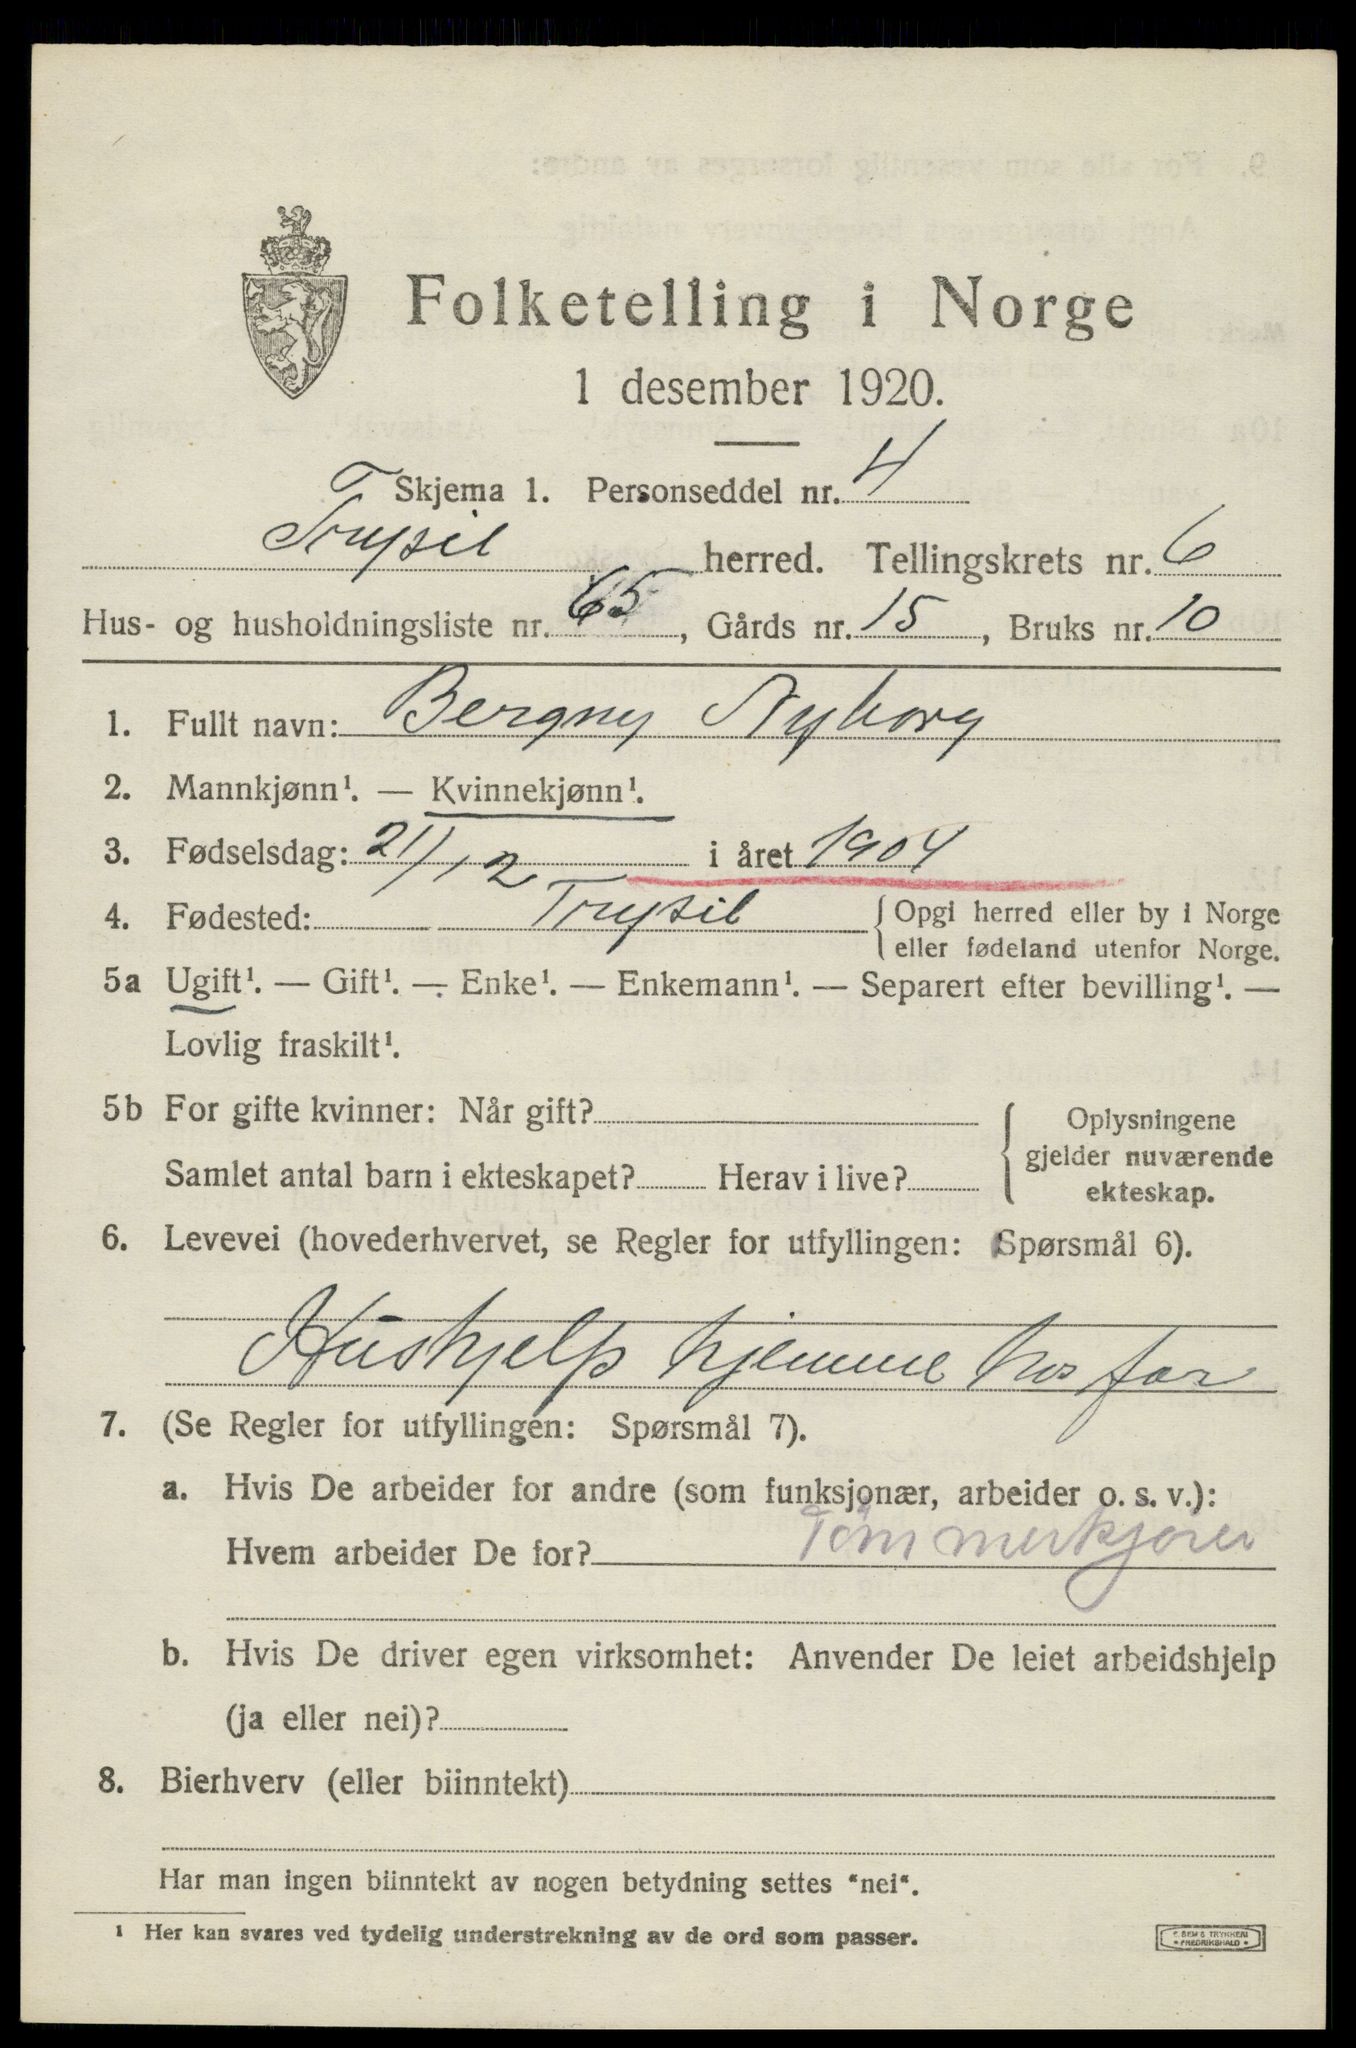 Folketelling i Norge
1 desember 1920.
Skjema 1. Personseddel nr. 4
Trysil herred. Tellingskrets nr. 6
Hus- og husholdningsliste nr. 65, Gårds nr. 15, Bruks nr. 10
1. Fullt navn: Bergny Nyborg
2. Mannkjønn¹. — Kvinnekjønn¹.
3. Fødselsdag: 21/12 i året 1904
4. Fødested: Trysil {Opgi herred eller by i Norge
eller fødeland utenfor Norge.
5a Ugift¹. — Gift¹. — Enke¹. — Enkemann¹. — Separert efter bevilling¹. —
Lovlig fraskilt¹.
5b For gifte kvinner: Når gift? { Oplysningene
gjelder nuværende
Samlet antal barn i ekteskapet? Herav i live?
ekteskap.
6. Levevei (hovederhvervet, se Regler for utfyllingen: Spørsmål 6).
Hushjelp hjemme hos far
7. (Se Regler for utfyllingen: Spørsmål 7).
a. Hvis De arbeider for andre (som funksjonær, arbeider o. s. v.):
Hvem arbeider De for? Tømmerkjører
b. Hvis De driver egen virksomhet: Anvender De leiet arbeidshjelp
(ja eller nei)?
8. Bierhverv (eller biinntekt)
Har man ingen biinntekt av nogen betydning settes "nei".
¹ Her kan svares ved tydelig understrekning av de ord som passer.
FREDRIKSHALD